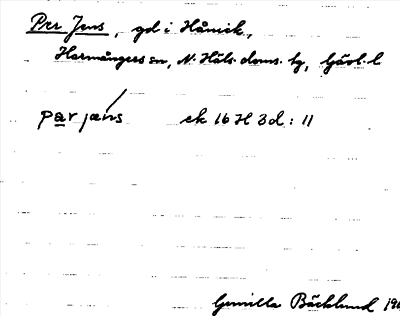 Per Jens, gd i Hånick,
Harmångers sn, N. Häls. doms. tg, Gävl. l
pạr jäns ek 16 H 3d : 11
Gunilla Bäcklund 196